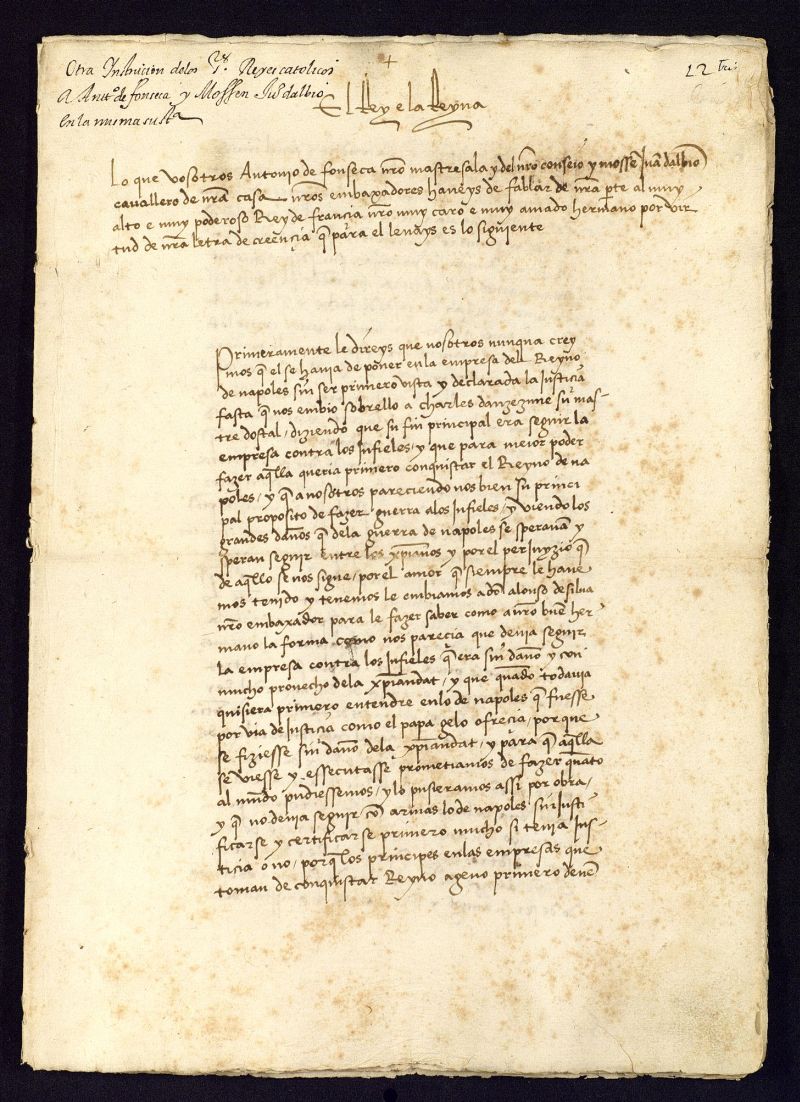 Otra Instrucion delos Reyes catolicos
A Antº de fonseca y Mossen Juº dalbio
en la misma susta
12
+
El Rey e la Reyna
Lo que vosotros Antonio de fonseca nro mastresala y del nro conseio y mossen Juã dalbiõ
cavallero de nr̃a casa nr̃os embaxadores haveys de fablar de nr̃a p̱te al muy
alto e muy poderoso Rey de francia nr̃o muy caro e muy amado hermano por vir
tud de nr̃a letra de creençia q̃ para el levays es lo siguiente
Primeramente le direys que nosotros nunqua crey
mos q̃ el se havia de poner en la empresa del Reyno
de napoles sin ser primero vista y declarada la Justicia
fasta q̃ nos embio sobrello a charles danzezune su mas
tre dostal / diziendo que su fin principal era seguir la
empresa contra los infieles / y que para meior poder
fazer aq̃lla queria primero conquistar el Reyno de na
poles / y q̃ a nosotros pareciendo nos bien su princi
pal proposito de fazer guerra alos Infieles / y viendo los
grandes daños q̃ dela guerra de napoles se speravan y
speran seguir entre los xp̃ianos y por el periuyzio q̃
de aq̃llo se nos sigue / por el amor q̃ siempre le have
mos tenido y tenemos le embiamos a dõ alonso de silva
nr̃o embaxador para le fazer saber como a nr̃o buẽ her
mano la forma como nos parecia que devia seguir
la empresa contra los Infieles q̃ era sin daño y con
mucho provecho dela xp̃iandat / y que quãdo todavia
quisiera primero entendre en lo de napoles q̃ fuesse
por via de Justicia como el papa gelo ofrecia / por que
se fiziesse sin daño dela xp̃iandat / y para q̃ aq̃lla
se viesse y essecutasse prometiamos de fazer quãto
al mũdo pudiessemos / y lo pusieramos assi por obra /
y q̃ no devia seguir cõ armas lo de napoles sin Justi
ficarse y certificarse primero mucho si tenia Jus
ticia o no / porq̃ los principes en las empresas que
toman de conquistar Reyno ageno primero devẽ